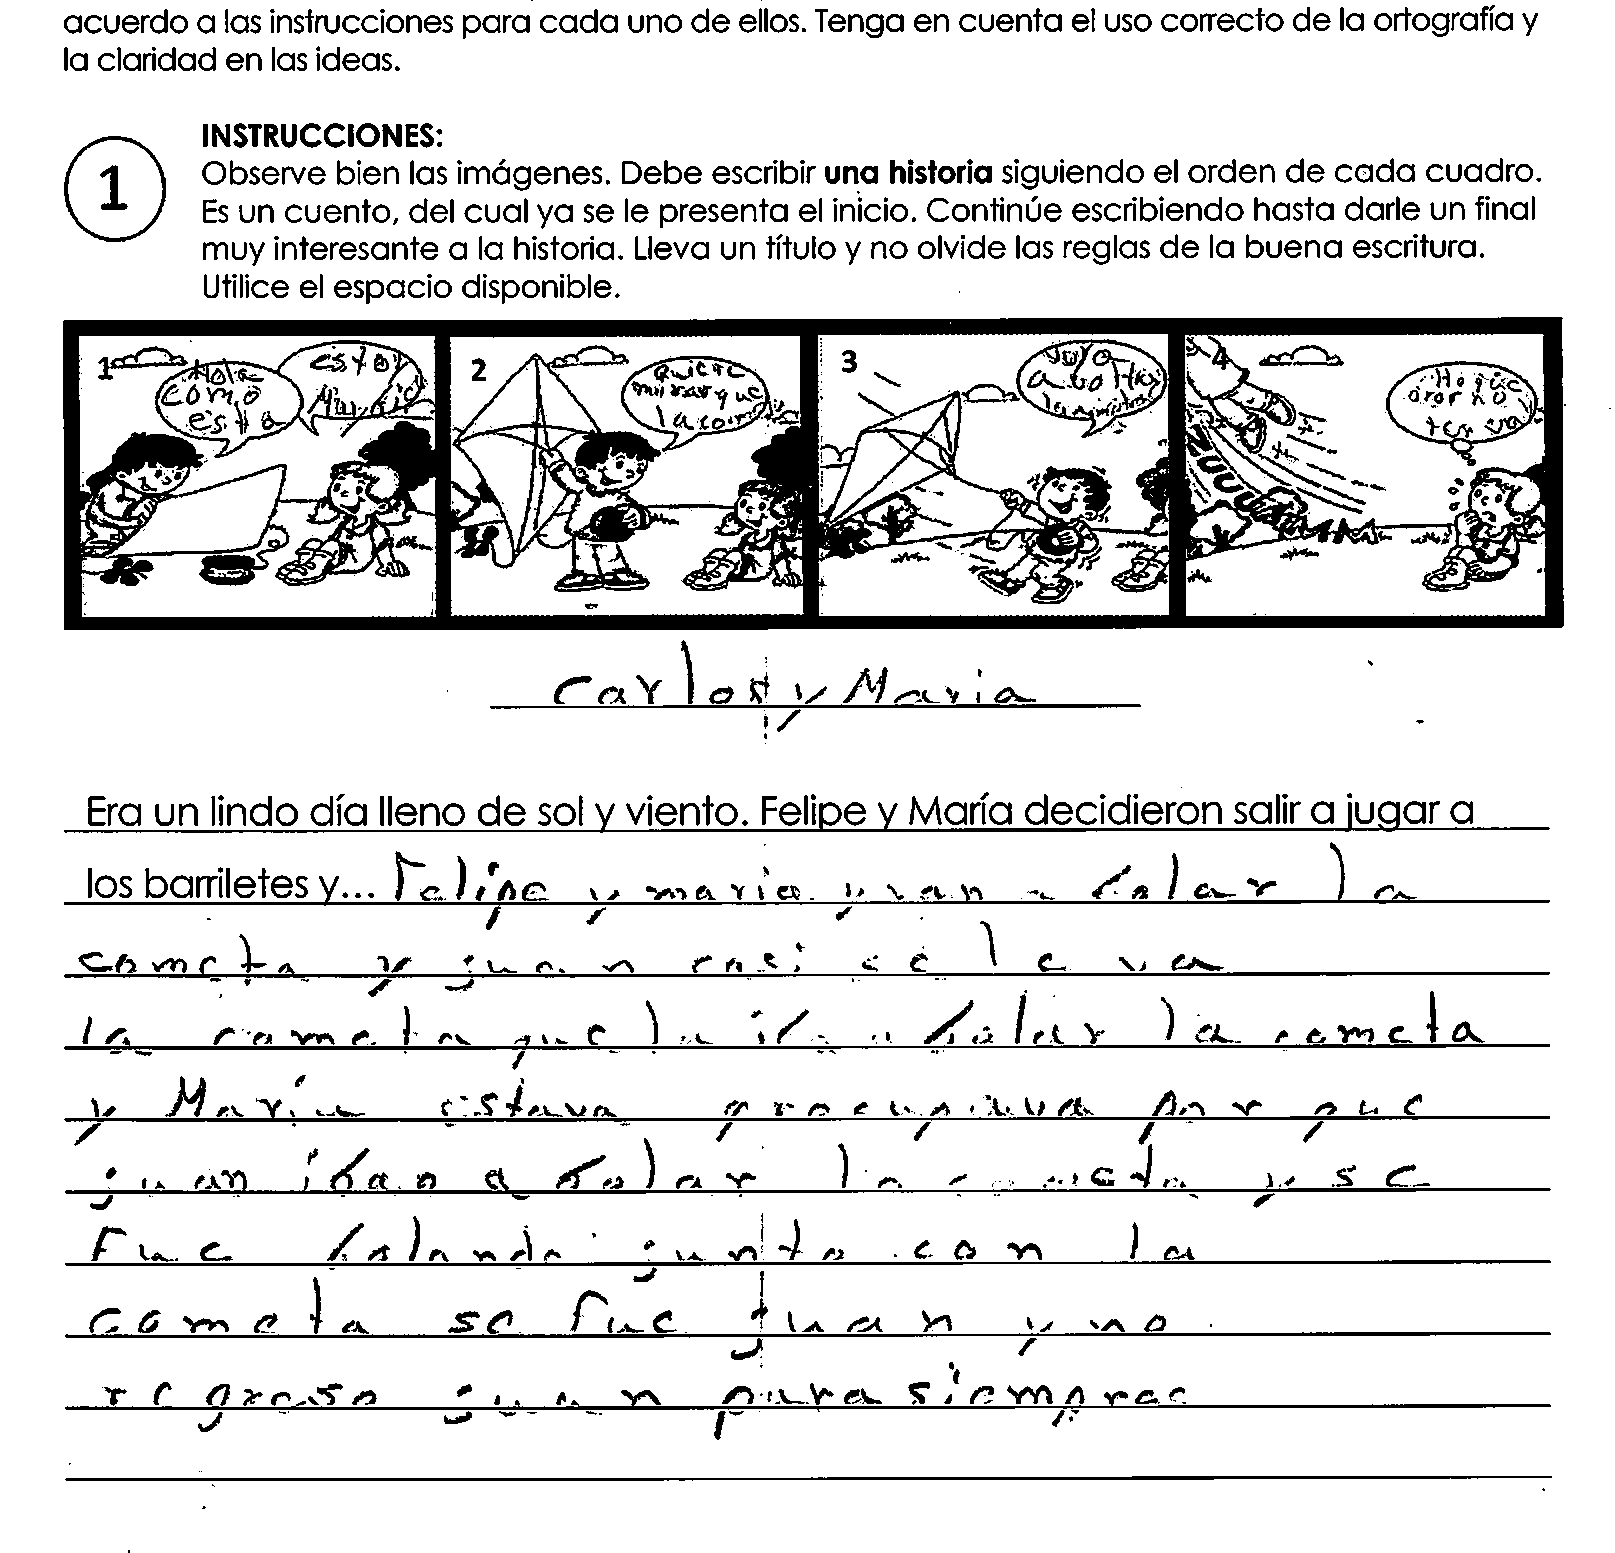 acuerdo a las instrucciones para cada uno de ellos. Tenga en cuenta el uso correcto de la ortografía y
la claridad en las ideas.
1
INSTRUCCIONES:
Observe bien las imágenes. Debe escribir una historia siguiendo el orden de cada cuadro.
Es un cuento, del cual ya se le presenta el inicio. Continúe escribiendo hasta darle un final
muy interesante a la historia. Lleva un título y no olvide las reglas de la buena escritura.
Utilice el espacio disponible.
1
Hola
como
esta
estoy
2
Quiere
mirar que
la
3
4
ZUUUUUMMM
Carlos y Maria
Era un lindo día lleno de sol y viento. Felipe y María decidieron salir a jugar a
los barriletes y... Felipe y maria y van a bolar la
cometa y juan casi se le va
la cometa que la iba a bolar la cometa
y Maria estava preocupava por que
juan iban a bolar la cometa y se
Fue bolando junto con la
cometa se fue juan y no
regreso juan para siempree